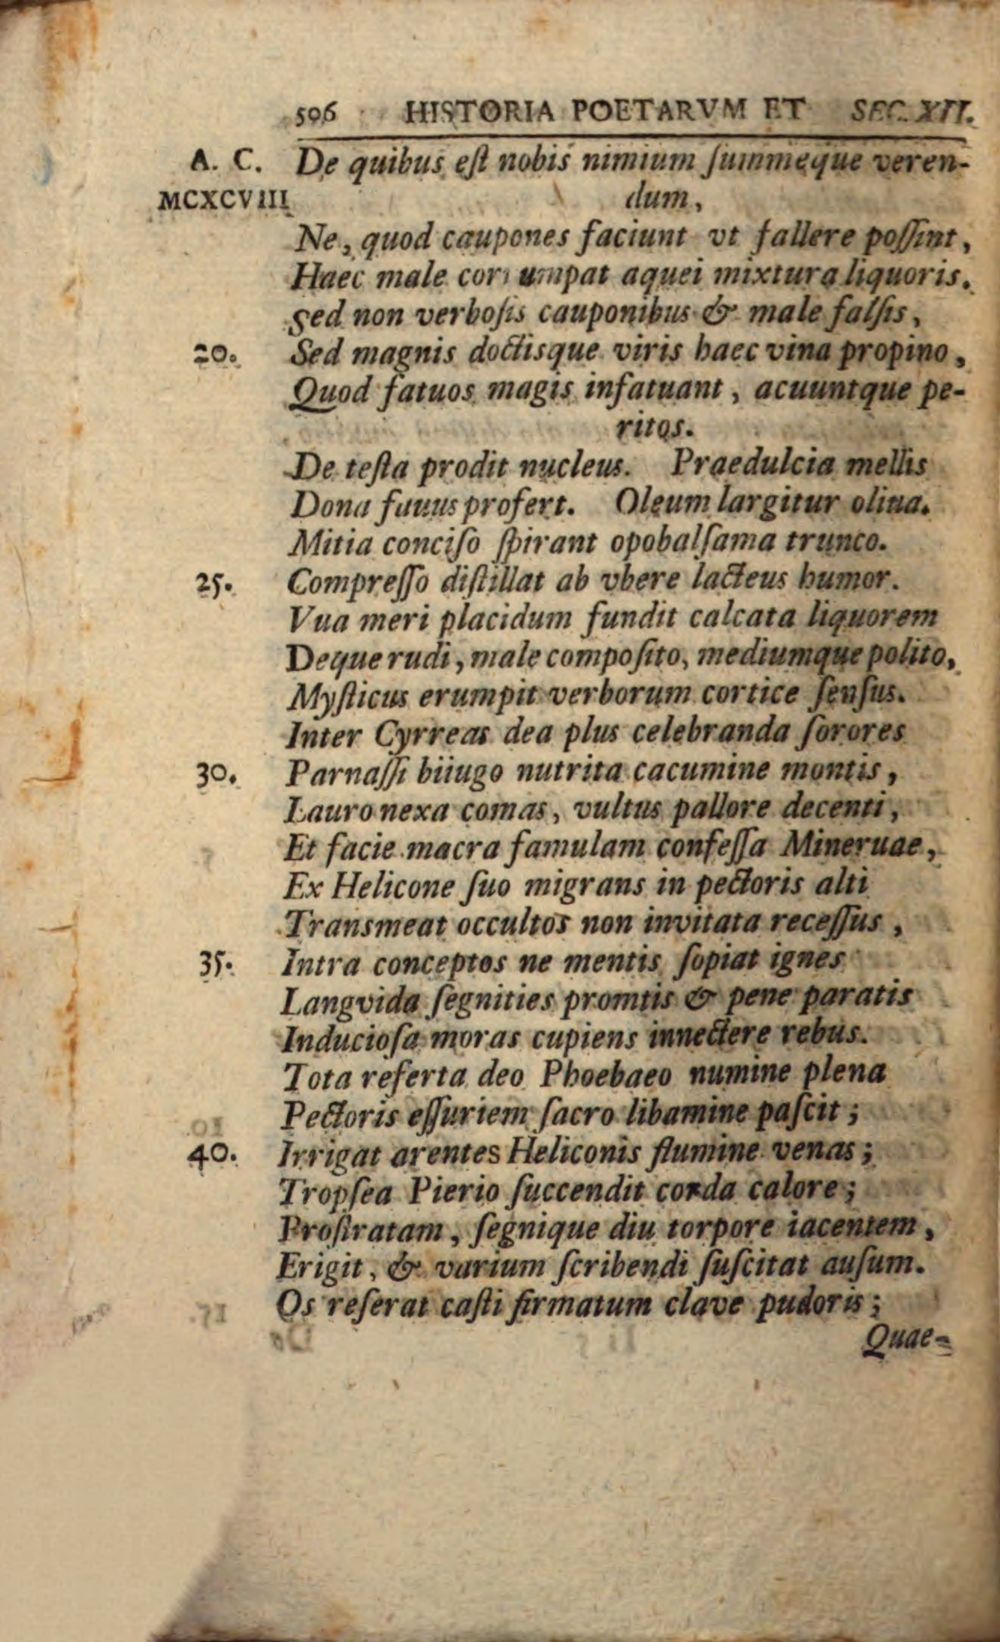 506 HISTORIA POETARVM ET SEC. XII.
A. C. De quibus eſt nobis nimium ſummeque veren-
MCXCVIII dum,
Ne, quod caupones faciunt vt fallere poſſint,
Haec male corrumpat aquei mixtura liquoris.
Sed non verboſis cauponibus & male falſis,
20. Sed magnis doctisque viris haec vina propino,
Quod fatuos magis infatuant, acuuntque pe-
ritos.
De teſta prodit nucleus. Praedulcia mellis
Dona fauus profert. Oleum largitur oliua.
Mitia conciſo ſpirant opobalſama trunco.
25. Compreſſo diſtillat ab vbere lacteus humor.
Vua meri placidum fundit calcata liquorem
Deque rudi, male compoſito, mediumque polito,
Myſticus erumpit verborum cortice ſenſus.
Inter Cyrreas dea plus celebranda ſorores
30. Parnaſſi biiugo nutrita cacumine montis,
Lauro nexa comas, vultus pallore decenti,
Et facie macra famulam confeſſa Mineruae,
Ex Helicone ſuo migrans in pectoris alti
Transmeat occultos non invitata receſſus,
35. Intra conceptos ne mentis ſopiat ignes
Langvida ſegnities promtis & pene paratis
Inducioſa moras cupiens innectere rebus.
Tota referta deo Phoebaeo numine plena
Pectoris eſſuriem ſacro libamine paſcit;
40. Irrigat arentes Heliconis flumine venas;
Tropſea Pierio ſuccendit corda calore;
Proſtratam, ſegnique diu torpore iacentem,
Erigit, & varium ſcribendi ſuſcitat auſum.
Os reſerat caſti firmatum clave pudoris;
Quae-